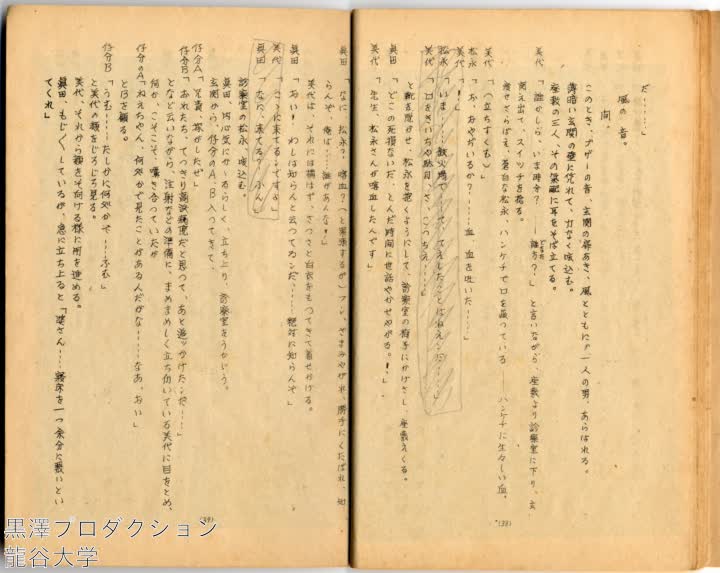 だ……」
風の音。
間。
このとき、ブザーの音、玄関の扉あき、風とともに、一人の男、あらはれる。
薄暗い玄関の壁に凭れて、力なく咳込む。
座敷の三人、その気配に耳をそば立てる。
美代「誰かしら、いま時分？──誰方？」と言いながら、座敷より診察室に下り、玄
関え出て、スイッチを捻る。
痩せさらばえ、蒼白な松永、ハンケチで口を蔽つている ハンケチに生々しい血。
美代「へ立ちすくむ」
松永「お、おやぢいるか？……血、血を吐いた……」
美代「！」
松永「いま……
美代「口をきいちや駄目、さ、こつちえ……」
と靴を脱がせ、松永を抱くようにして、診察室の椅子にかけさし、座敷えくる。
眞田「どこの死損ないだ、とんだ時間に世話やかせやがる。！」
美代「先生、松永さんが喀血したんです」
眞田「なに、松永？　喀血？（と緊張するが）フン、ざまみやがれ、勝手にくたばれ、知
らんぞ、俺は……誰があんな！」
美代は、それには構はず、さつさと白衣をもつてきて着せかける。
眞田「おい！　わしは知らんと云つてるンだ……絶対に知らんぞ」
美代「こゝに来てるンですよ」
眞田「なに、来てる？　ふん」
診察室の松永、咳込む。
眞田、内心気にかゝるらしく、立ち上り、診察室をうかゞう。
玄関から、仔分のA、B入つてきて、
仔分A「兄貴、捜がしたぜ」
仔分B「おれたち、てつきり
となど云いながら、注射などの準備に、まめまめしく立ち仂いている美代に目をとめ、
何か、こそこそ、囁き合つていたが
仔分のA「ねえちやん、何処かで見たことがあるんだがな……なあ、おい」
とBを顧る。
仔分B「うむ……たしかに何処かで……ふむ」
と美代の顔をじろじろ見る。
美代、それから顔をそむける様に用を進める。
眞田、もじ〳〵しているが、急に立ち上ると「婆さん……寝床を一つ余分に敷いとい
てくれ」
(38)
(39)
黒澤プロダクション
龍谷大学